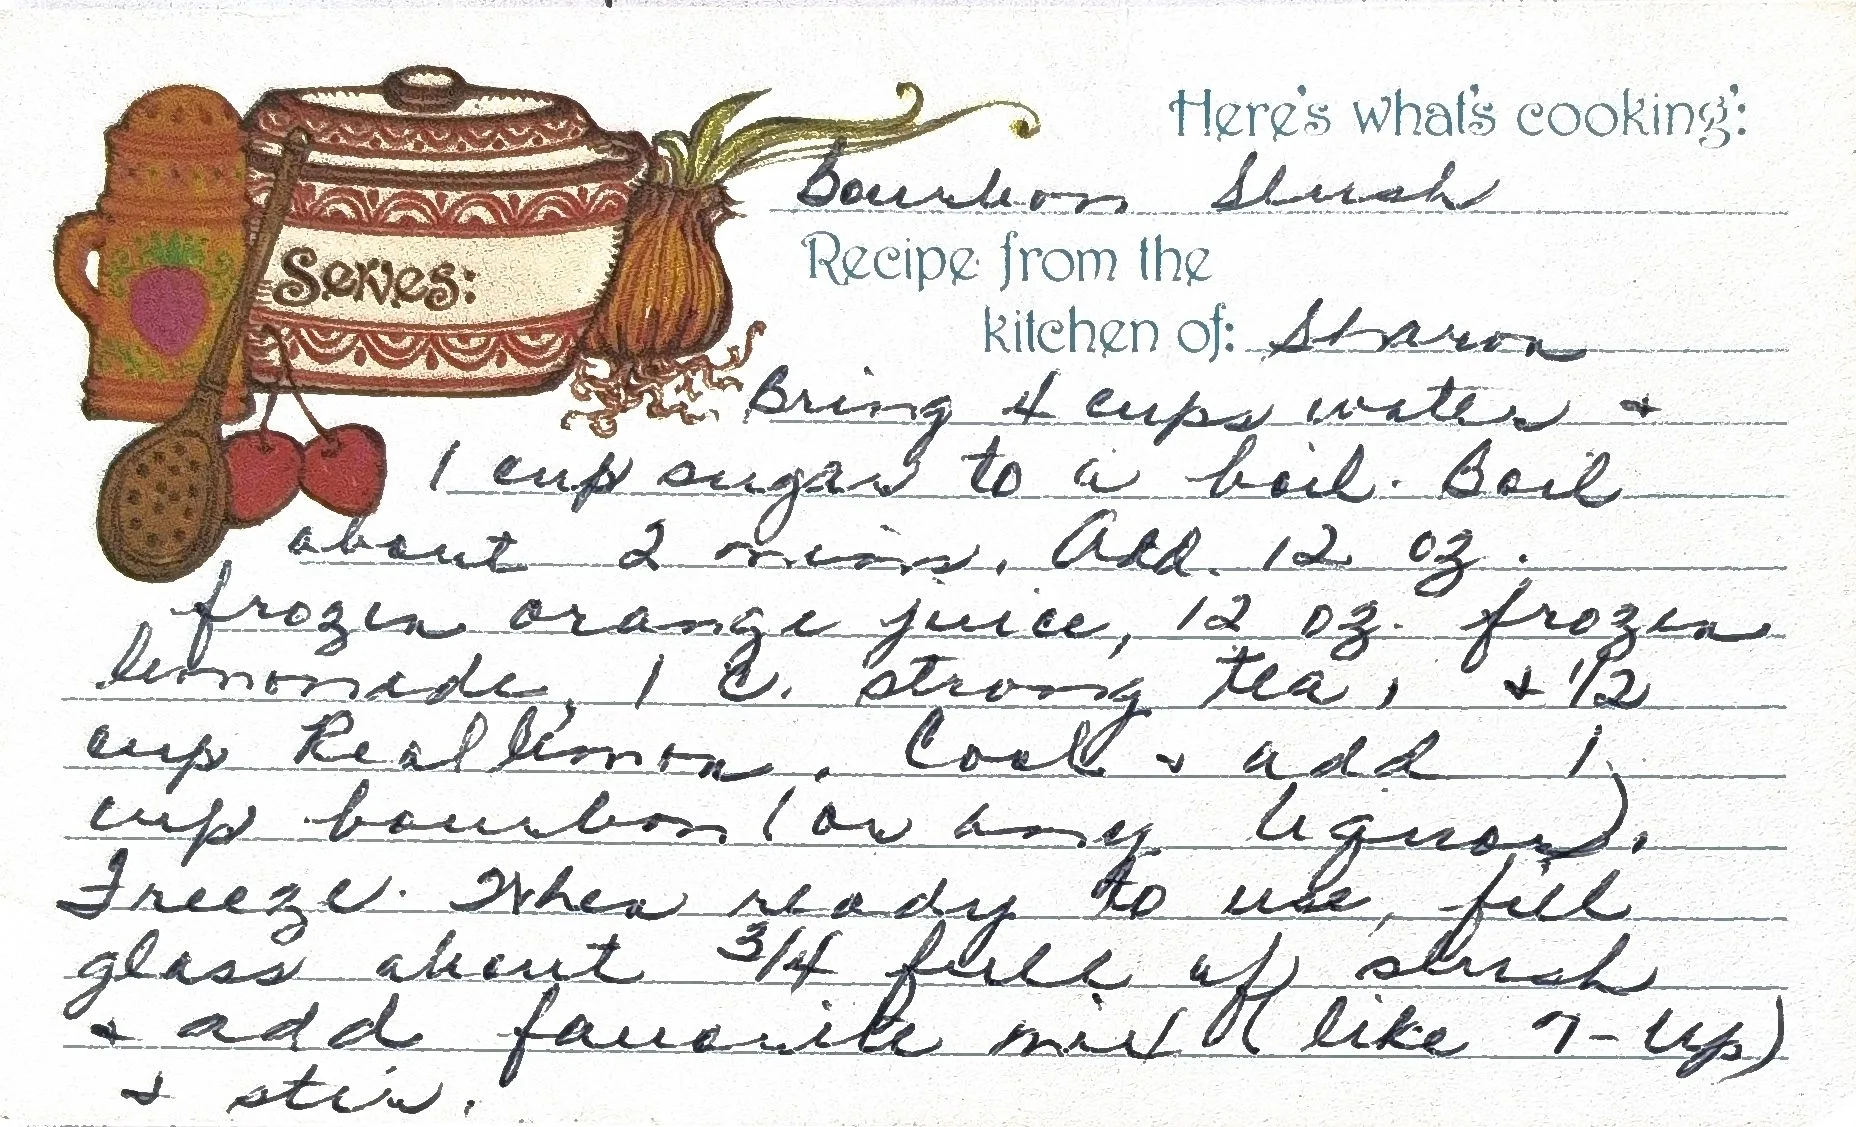 Here's what's cooking:
Bourbon Slush
Serves:
Recipe from the
kitchen of: Sharon
Bring 4 cups water +
1 cup sugar to a boil. Boil
about 2 mins. Add 12 oz.
frozen orange juice, 12 oz. frozen
lemonade, 1 c. strong tea, + 1/2
cup Real lemon. Cool + add 1
cup bourbon (or any liquor).
Freeze. When ready to use, fill
glass about 3/4 full of slush
+ add favorite mix (like 7-Up)
+ stir.